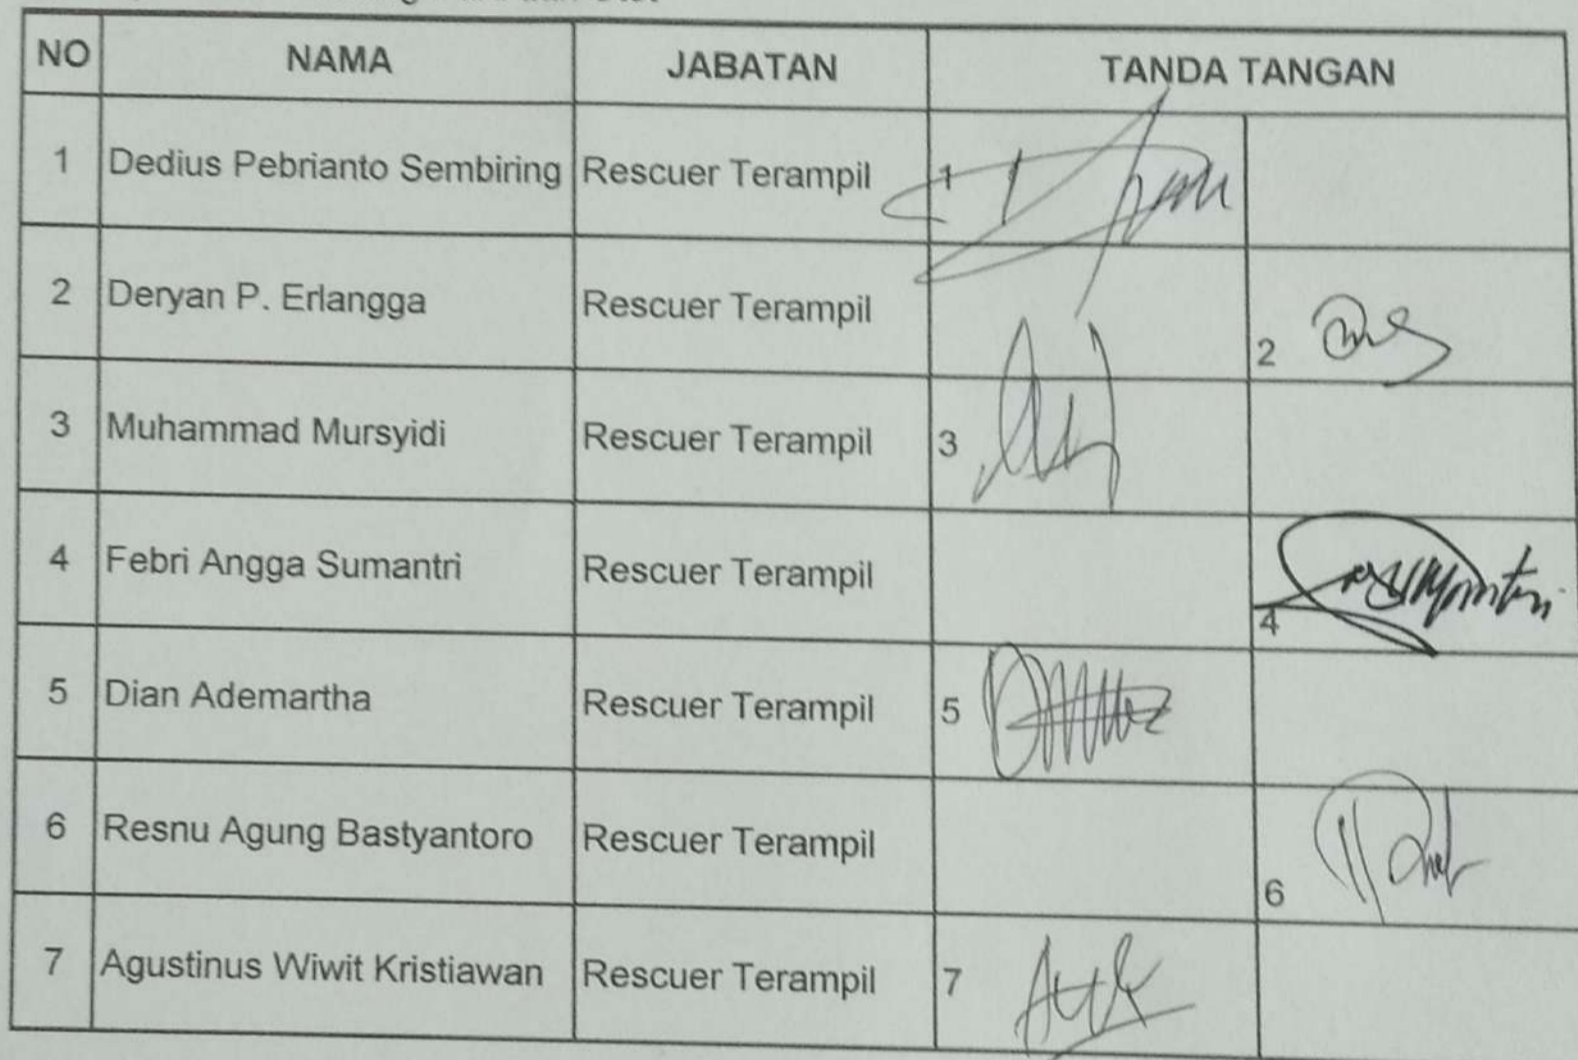 NO NAMA JABATAN TANDA TANGAN
1 Dedius Pebrianto Sembiring Rescuer Terampil 1
2 Deryan P. Erlangga Rescuer Terampil 2
3 Muhammad Mursyidi Rescuer Terampil 3
4 Febri Angga Sumantri Rescuer Terampil 4
5 Dian Ademartha Rescuer Terampil 5
6 Resnu Agung Bastyantoro Rescuer Terampil 6
7 Agustinus Wiwit Kristiawan Rescuer Terampil 7